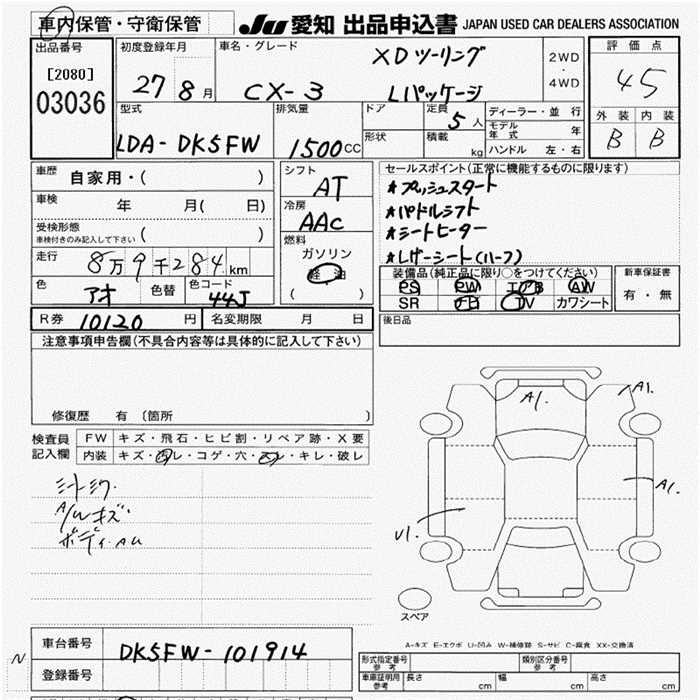 車内保管・守衛保管
JU 愛知 出品申込書 JAPAN USED CAR DEALERS ASSOCIATION
出品番号
[2080]
03036
初度登録年月
27 8 月
車名・グレード
XD ツーリング
CX-3 Lパッケージ
2WD
・
4WD
評価点
4.5
外装 内装
B B
型式
LDA-DK5FW
排気量
1500 CC
ドア
形状
定員
5 人
積載
kg
ディーラー・並行
モデル年式 年
ハンドル 左・右
車歴
自家用・( )
車検
年 月( 日)
受検形態
車検付きのみ記入して下さい ( )
走行
8万9千284 km
色
アオ
色替
色コード
44J
シフト
AT
冷房
AAC
燃料
ガソリン
軽油
( )
セールスポイント(正常に機能するものに限ります)
★プッシュスタート
★パドルシフト
★シートヒーター
★レザーシート(ハーフ)
装備品(純正品に限り○をつけてください)
PS PW エアB AW
SR ナビ TV カワシート
新車保証書
有・無
後日品
R券 10120 円
名変期限 月 日
注意事項申告欄(不具合内容等は具体的に記入して下さい)
修復歴 有 〔箇所 〕
検査員記入欄
FW キズ・飛石・ヒビ割・リペア跡・X要
内装 キズ・汚レ・コゲ・穴・スレ・キレ・破レ
A/Wキズ
ボディ.AU
A1.
A1.
A1.
U1.
スペア
A-キズ E-エクボ U-凹み W-補修跡 S-サビ C-腐食 XX-交換済
N
車台番号
DK5FW-101914
登録番号
形式指定番号
参考
類別区分番号
参考
車庫証明用
参考
長さ cm
幅 cm
高さ cm